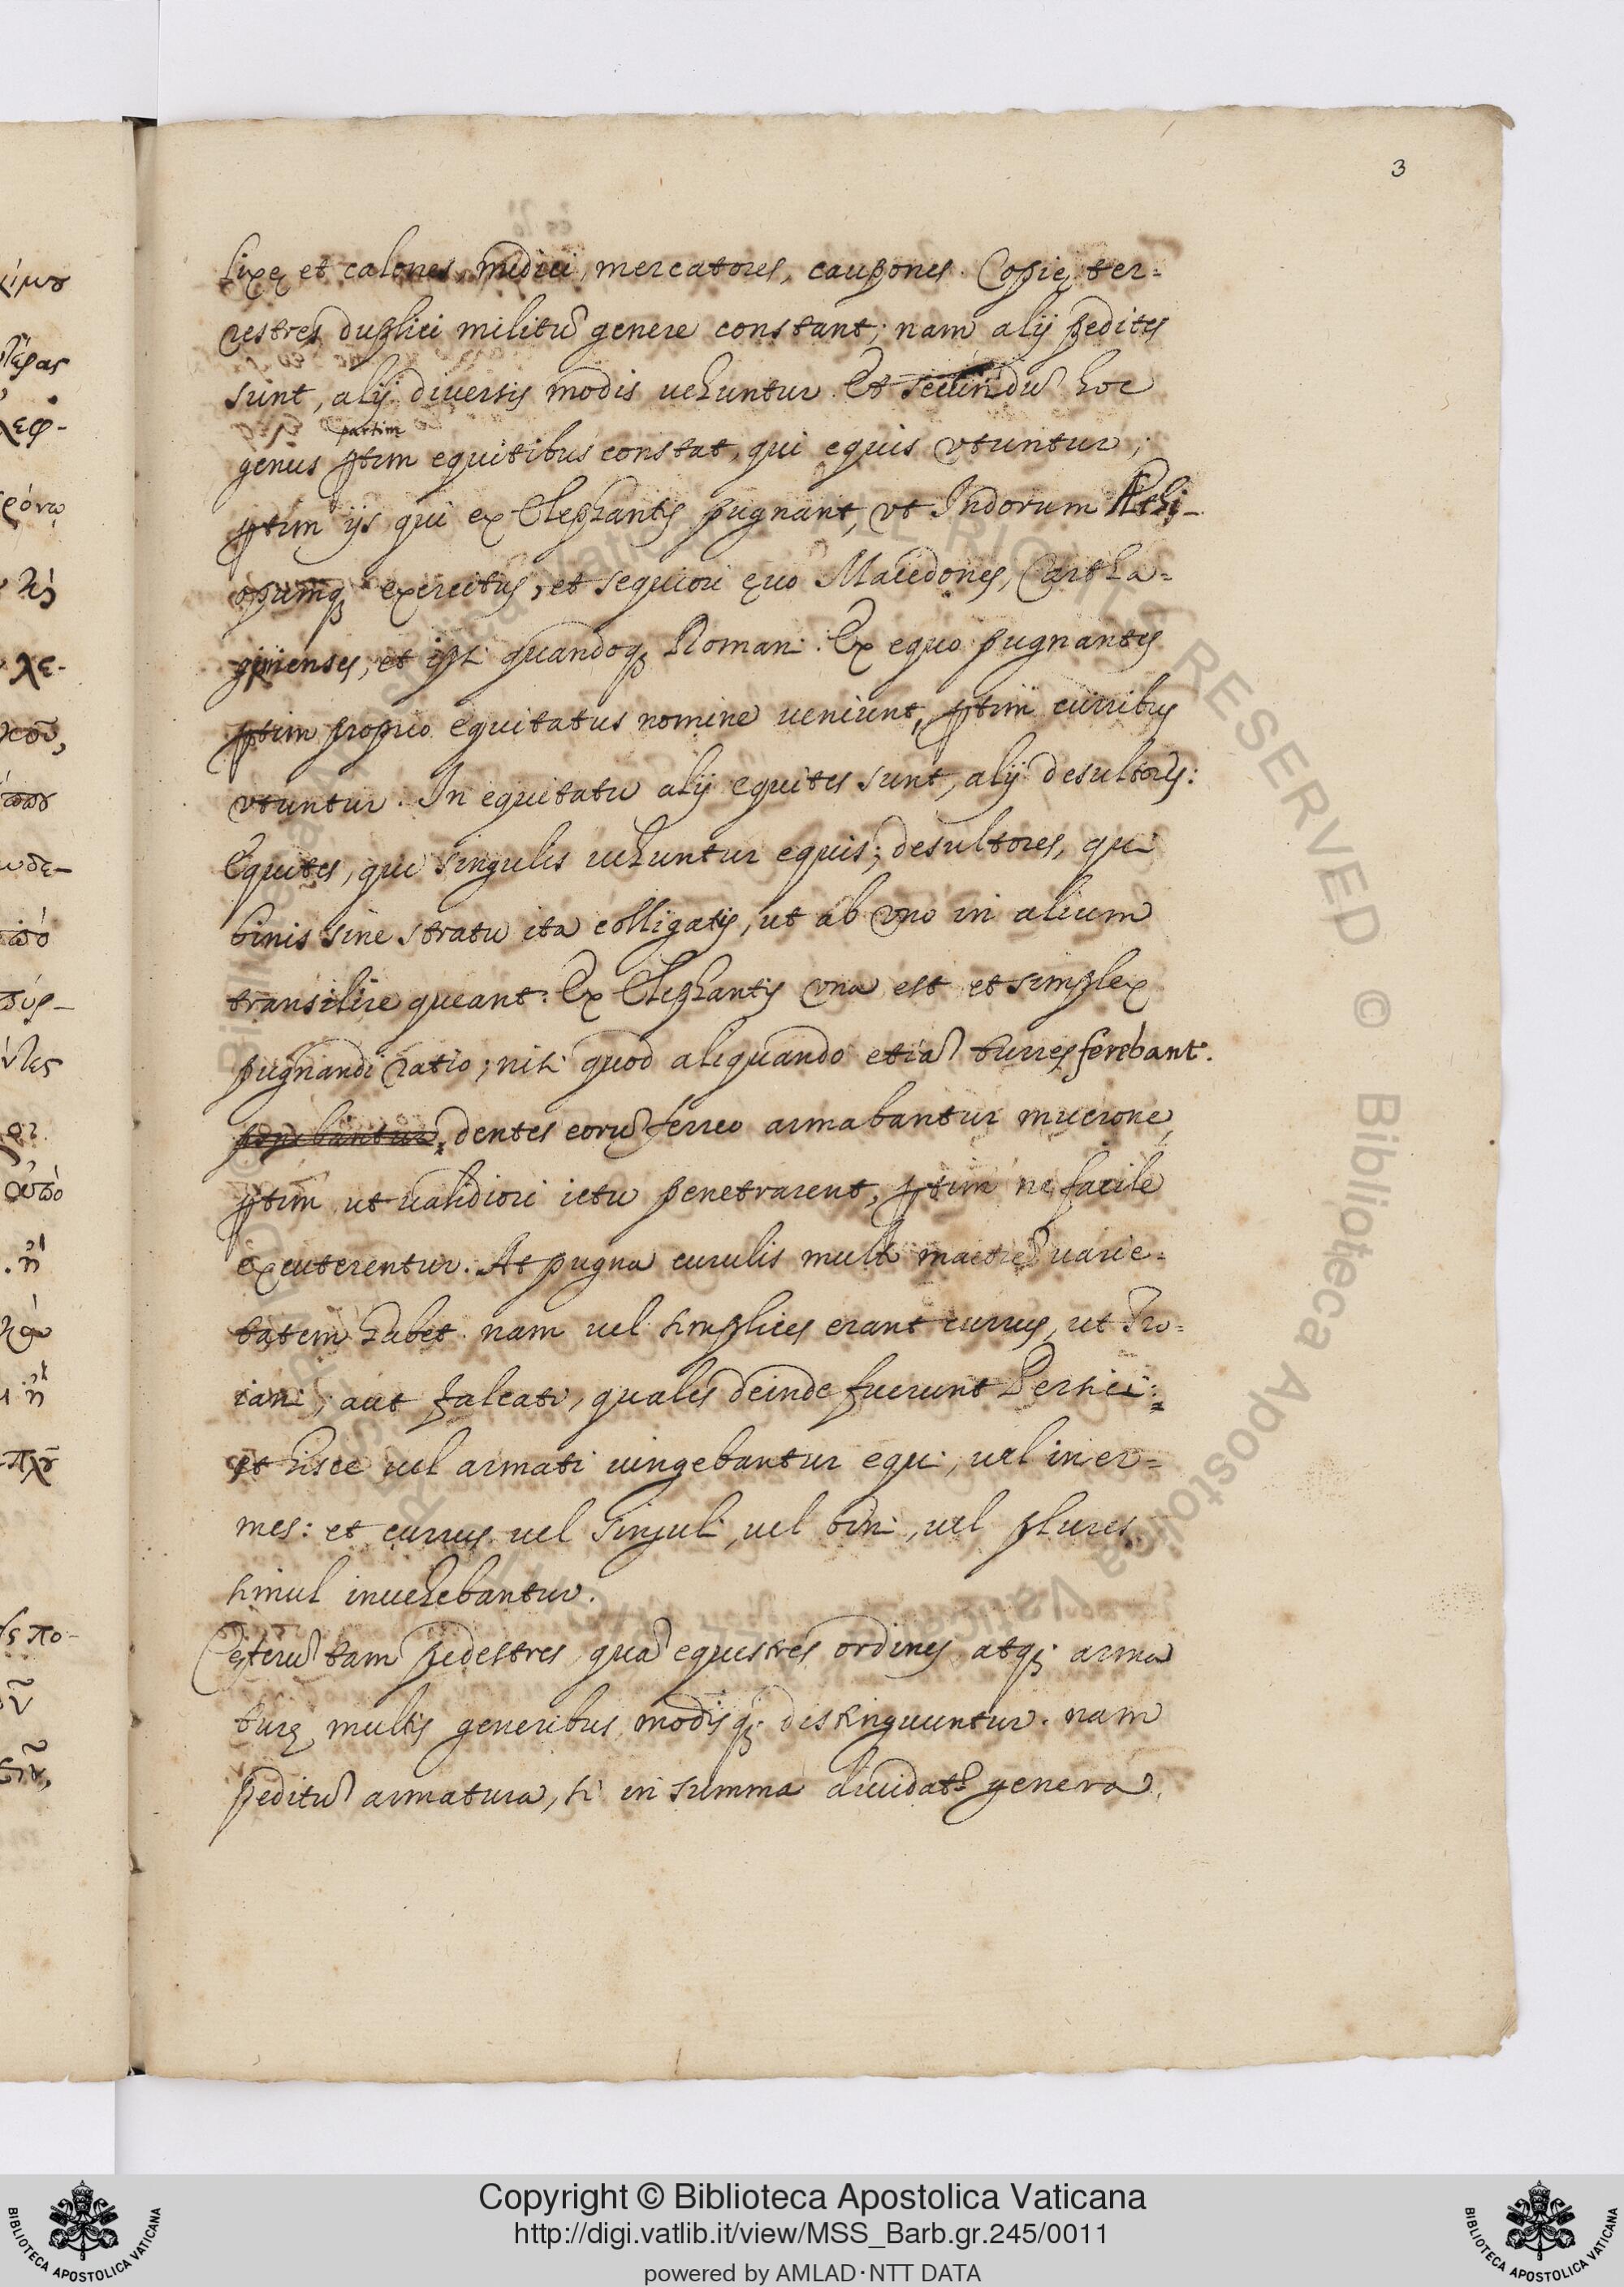 3
lixę et calones, medici, mercatores, caupones. Copię ter=
restres duplici militũ genere constant; nam alij pedites
sunt, alij diversis modis uehuntur. Et secundũ hoc
partim
genus ꝑtim equitibus constat, qui equis vtuntur;
ꝑtim ijs qui ex Elephantis pugnant, vt Indorum Æthi-
opumq; exercitus, et sequiori ęuo Macedones, Cartha=
ginienses, et ipsi quandoq; Romani. Ex equo pugnantes
ꝑtim proprio equitatus nomine ueniunt, ꝑtim curribus
vtuntur. In equitatu alij equites sunt, alij desultores:
Equites, qui singulis uehuntur equis; desultores, qui
binis sine stratu ita colligatis, ut ab vno in alium
transilire queant. Ex Elephantis vna est et simplex
pugnandi ratio; nisi quod aliquando etiã turres ferebant.
ponebantur, dentes eorũ ferreo armabantur mucrone,
ꝑtim ut ualidiori ictu penetrarent, ꝑtim ne facile
excuterentur. At pugna curulis multi uarie=
tatem habet. nam uel simplices erant currus, ut Tro=
iani; aut falcati, quales deinde fuerunt Persici:
et hisce uel armati iungebantur equi, uel iner=
mes: et currus uel singuli, uel bini, uel plures
simul inuehebantur.
Cęterũ tam pedestres quã equestres ordines atq; arma
turę multis generibus modisq; distinguuntur. nam
peditũ armatura, si in summa diuidatr genera,
ίμου
τέρας
λεφ-
ρόνῳ
λε-
κοῦ,
υδε-
ντες
.ἢ
ς πο-
Copyright © Biblioteca Apostolica Vaticana
http://digi.vatlib.it/view/MSS_Barb.gr.245/0011
powered by AMLAD·NTT DATA
BIBLIOTECA APOSTOLICA VATICANA
BIBLIOTECA APOSTOLICA VATICANA